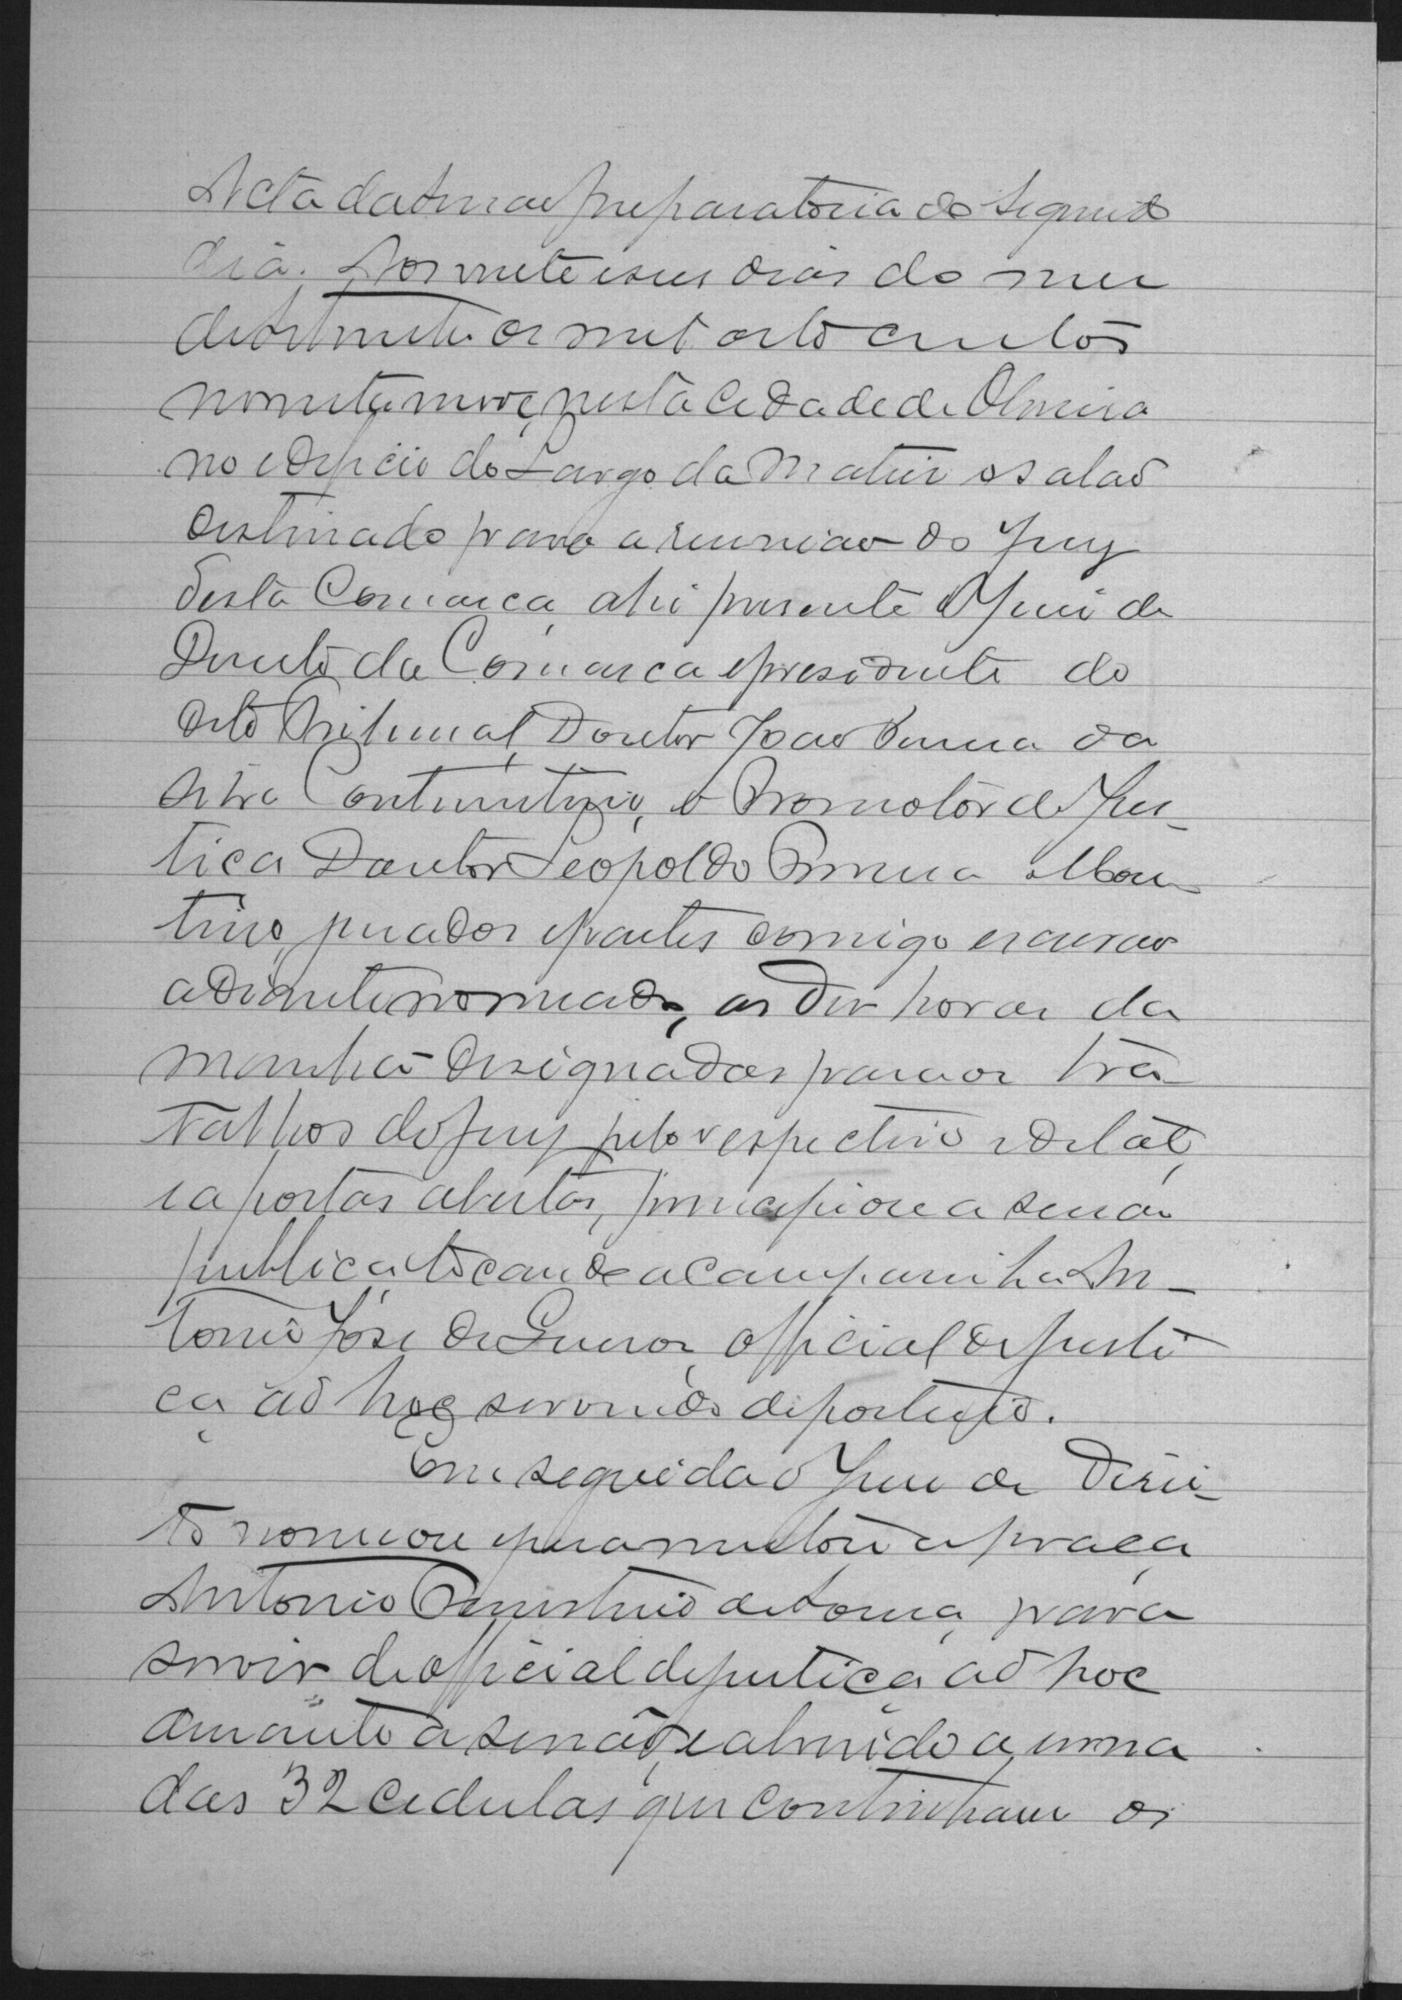 Acta da sessão preparatoria do segundo
dia. Aos vinte e seis dias do mez
de Setembro de mil oito centos
noventa nove, nesta Cidade de Oliveira
no edificio do Largo da Matriz o salão
destinado para a reunião do Jury
desta Comarca, ahi presente o Juiz de
Direito da Comarca e presidente do
dito Tribunal, Doutor João Pereira da
Silva Continentino, o Promotor de Jus-
tiça Doutor Leopoldo Ferreira Mon-
teiro, jurados e partes comigo escrivão
adiante nomeado, as dez horas da
manhã designadas para os tra-
balhos do Jury pelo respectivo edital,
e a portas abertas, principiou a sessão
publica, tocando a campainha An-
tonio José de, official de justi
ça ad hoc servindo de porteiro.
Em seguida o Juiz de Direi-
to nomeou e juramentou a praça
Antonio de Souza, para
servir de official de justiça ad hoc
durante a sessão, e abrindo a urna
das 32 cedulas que continham os